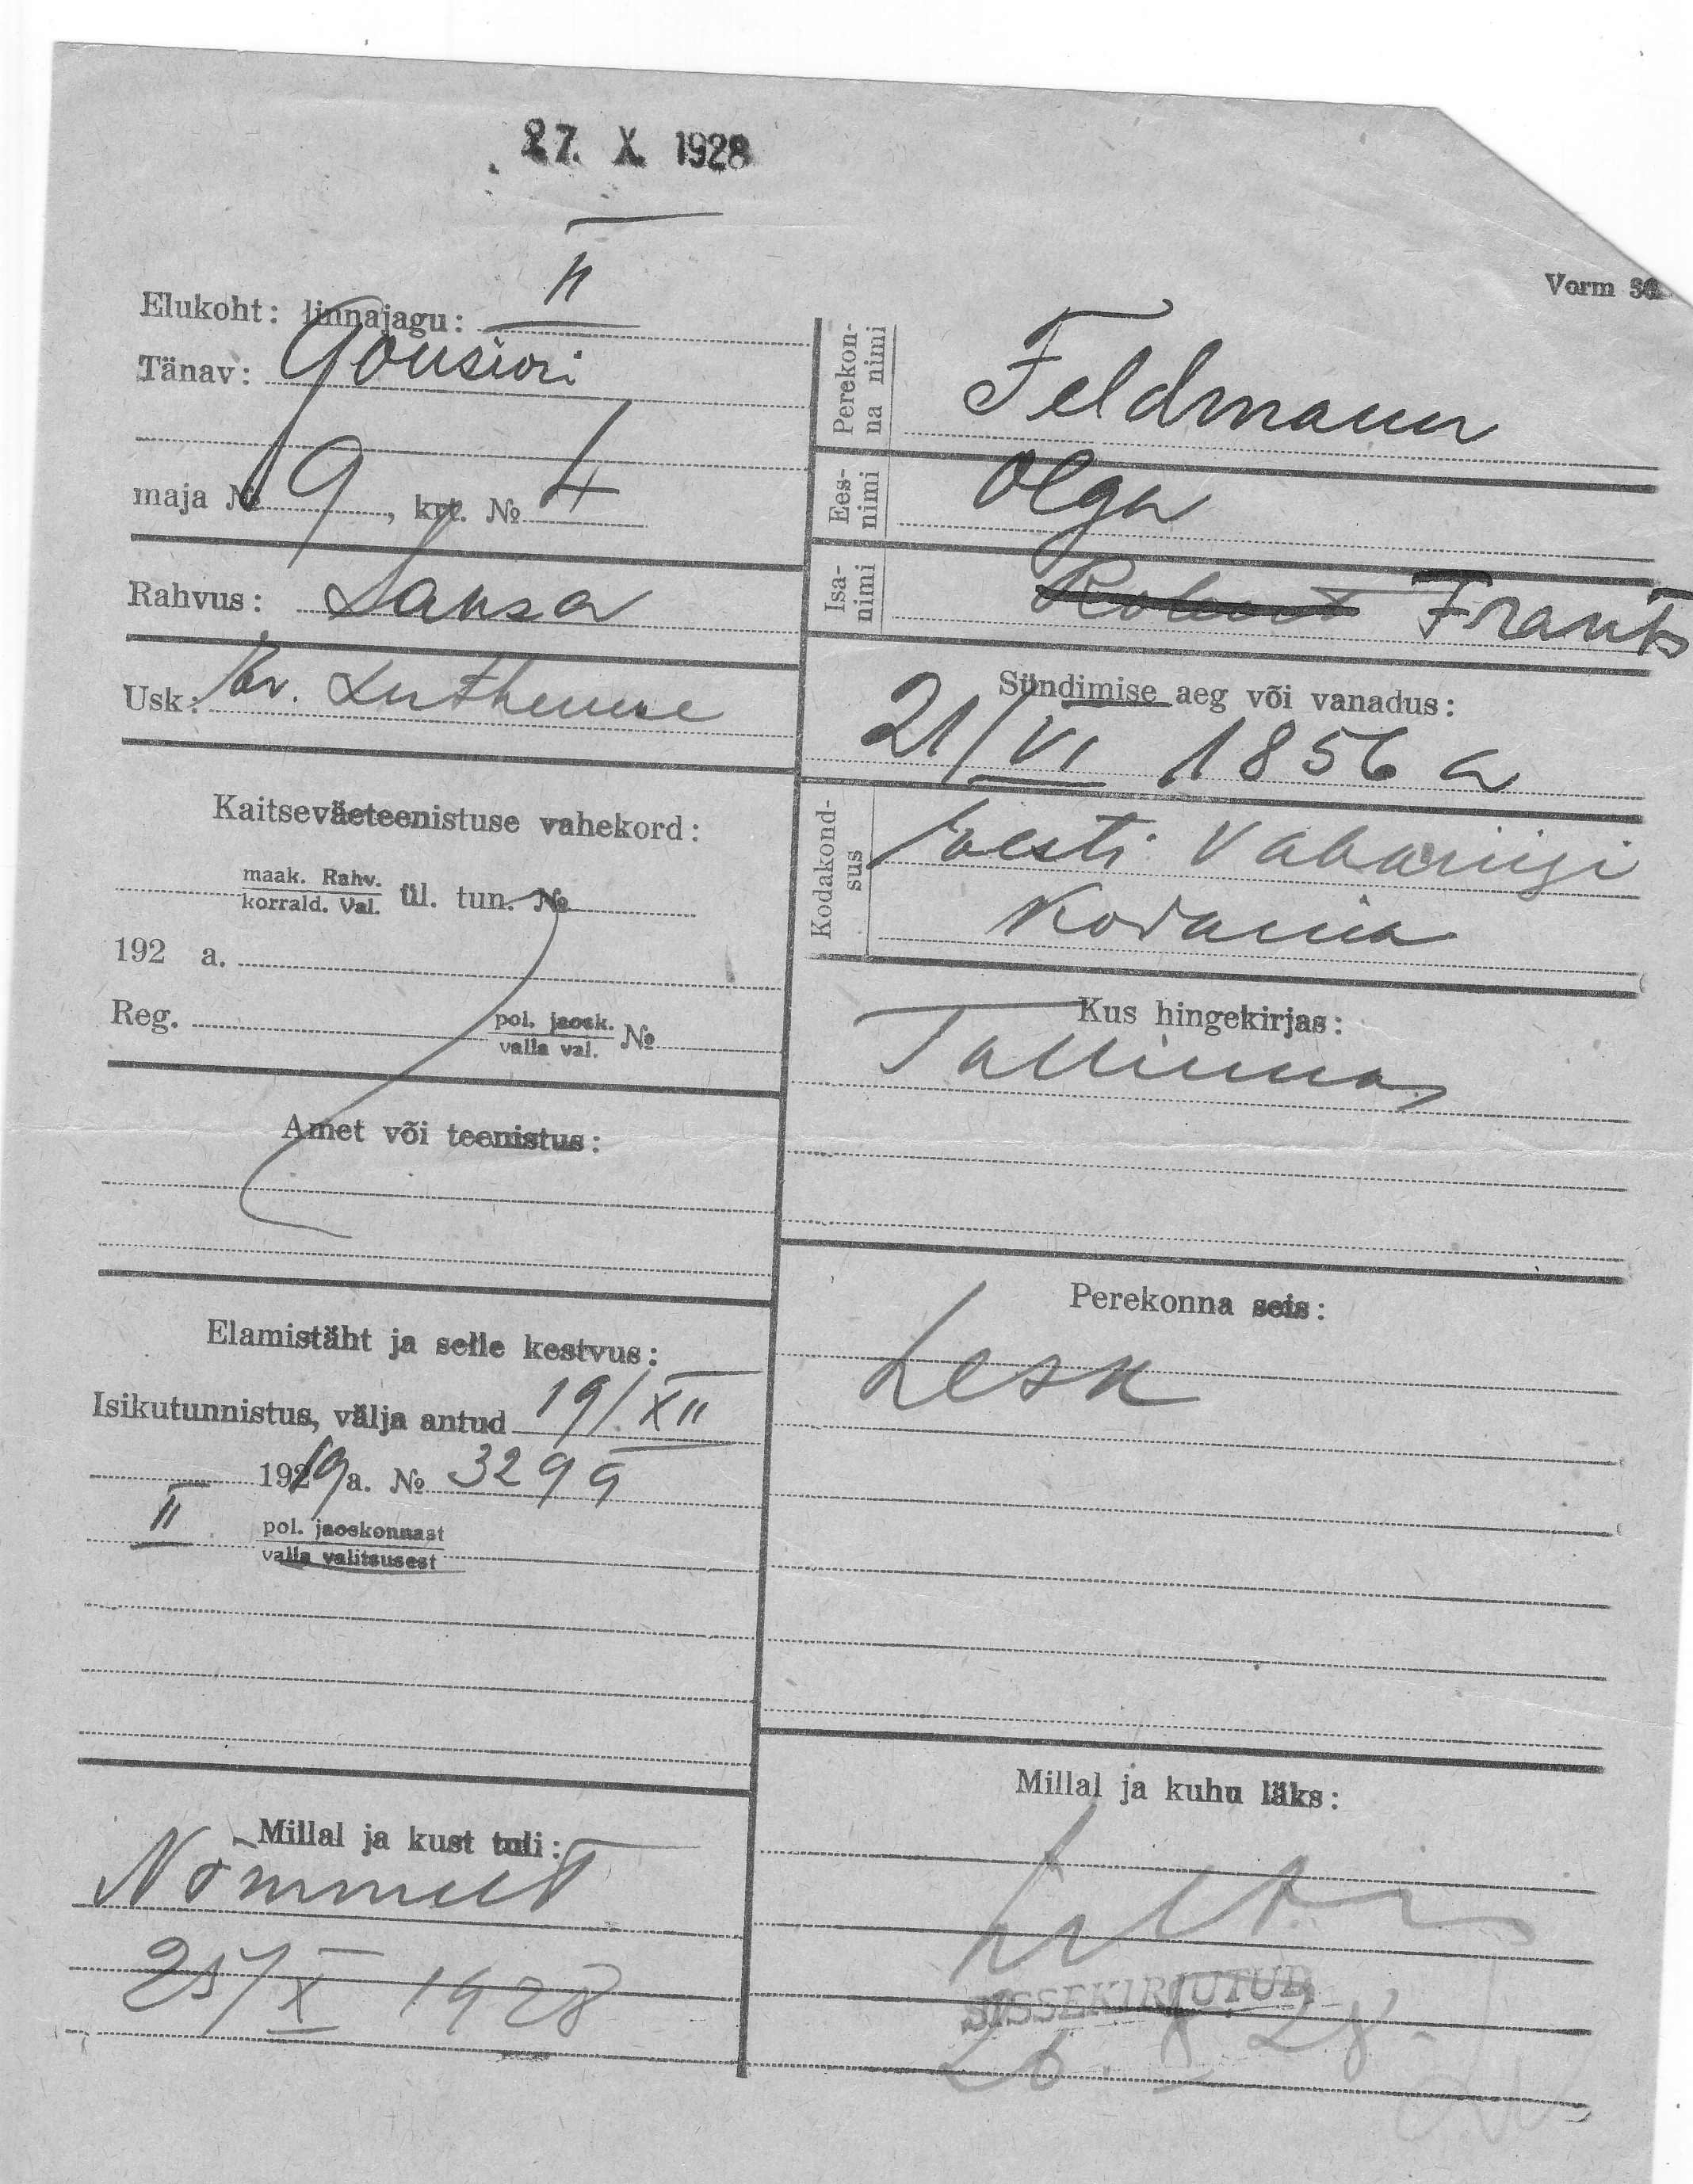 27. X 1928
Vorm 30
Elukoht: linnajagu: II
Tänav: Gonsiori
maja № 9, krt. № 4
Rahvus: Saksa
Usk: Ev. Lutheruse
Kaitseväeteenistuse vahekord:
maak. Rahv.
korrald. Val. ül. tun. №
192 a.
Reg. pol. jaosk.
valla val. №
Amet või teenistus:
Elamistäht ja selle kestvus:
Isikutunnistus, välja antud 19/XII
1919 a. № 3299
II pol. jaoskonnast
valla valitsusest
Millal ja kust tuli:
Nõmmelt
25/X 1928
Perekon-
na nimi
Feldmann
Ees-
nimi
Olga
Isa-
nimi
Robert Frants
Sündimise aeg või vanadus:
21/VI 1856 a
Kodakond-
sus
Eesti Vabariigi
Kodanik
Kus hingekirjas:
Tallinnas
Perekonna seis:
Lesk
Millal ja kuhu läks:
SISSEKIRJUTUD
28.